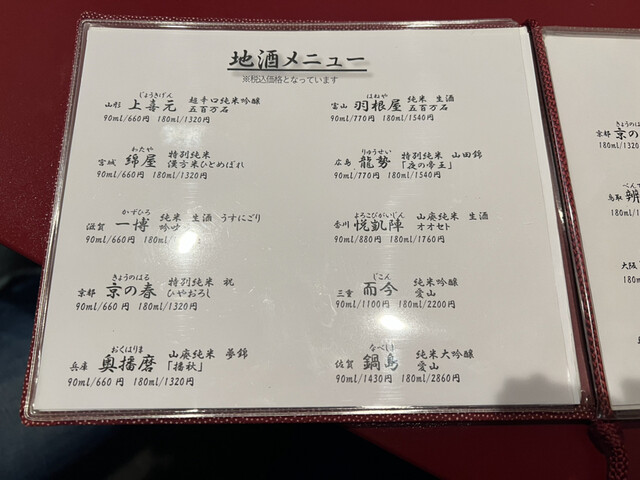 地酒メニュー
※税込価格となっています
じょうきげん
山形 上喜元 超辛口純米吟醸
五百万石
90ml/660円 180ml/1320円
わたや
宮城 綿屋 特別純米
漢方米ひとめぼれ
90ml/660円 180ml/1320円
かずひろ
滋賀 一博 純米 生酒 うすにごり
90ml/660円
きょうのはる
京都 京の春 特別純米 祝
ひやおろし
90ml/660円 180ml/1320円
おくはりま
兵庫 奥播磨 山廃純米 夢錦
「播秋」
90ml/660円 180ml/1320円
はねや
富山 羽根屋 純米 生酒
五百万石
90ml/770円 180ml/1540円
りゅうせい
広島 龍勢 特別純米 山田錦
「夜の帝王」
90ml/770円 180ml/1540円
よろこびがいじん
香川 悦凱陣 山廃純米 生酒
オオセト
90ml/880円 180ml/1760円
じこん
三重 而今 純米吟醸
愛山
90ml/1100円 180ml/2200円
なべしま
佐賀 鍋島 純米大吟醸
愛山
90ml/1430円 180ml/2860円
きょうのは
京都 京の
180ml/1320
鳥取
180ml/1
大阪
180m